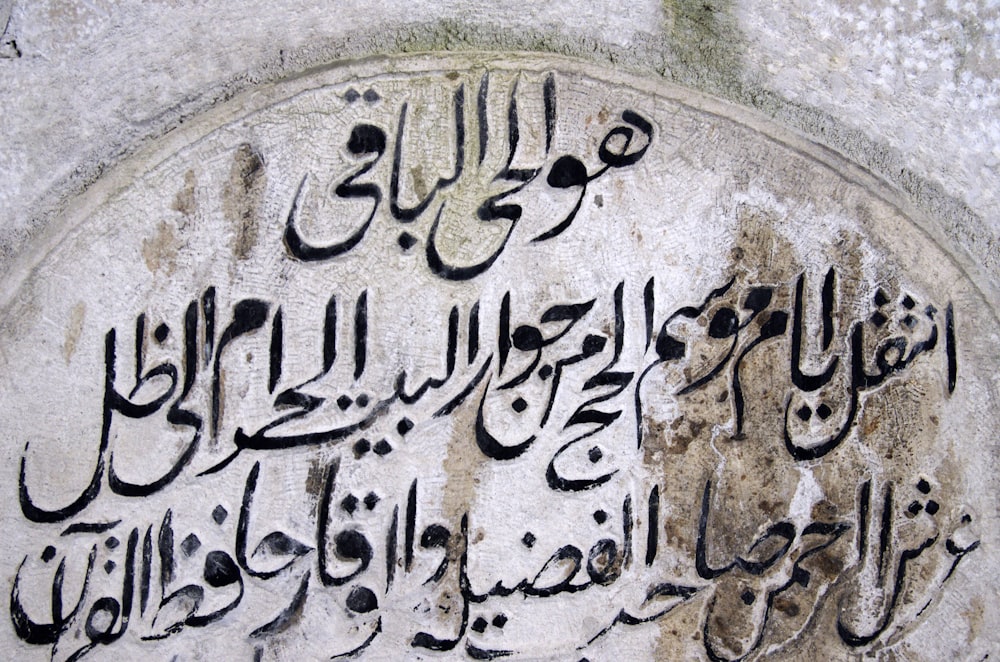 هو الحى الباقى
انتقل ايام موسم الحج من جوار البيت الحرام الى ظل
عرش الرحمن صاحب الفضيلة والوقار حافظ القرآن